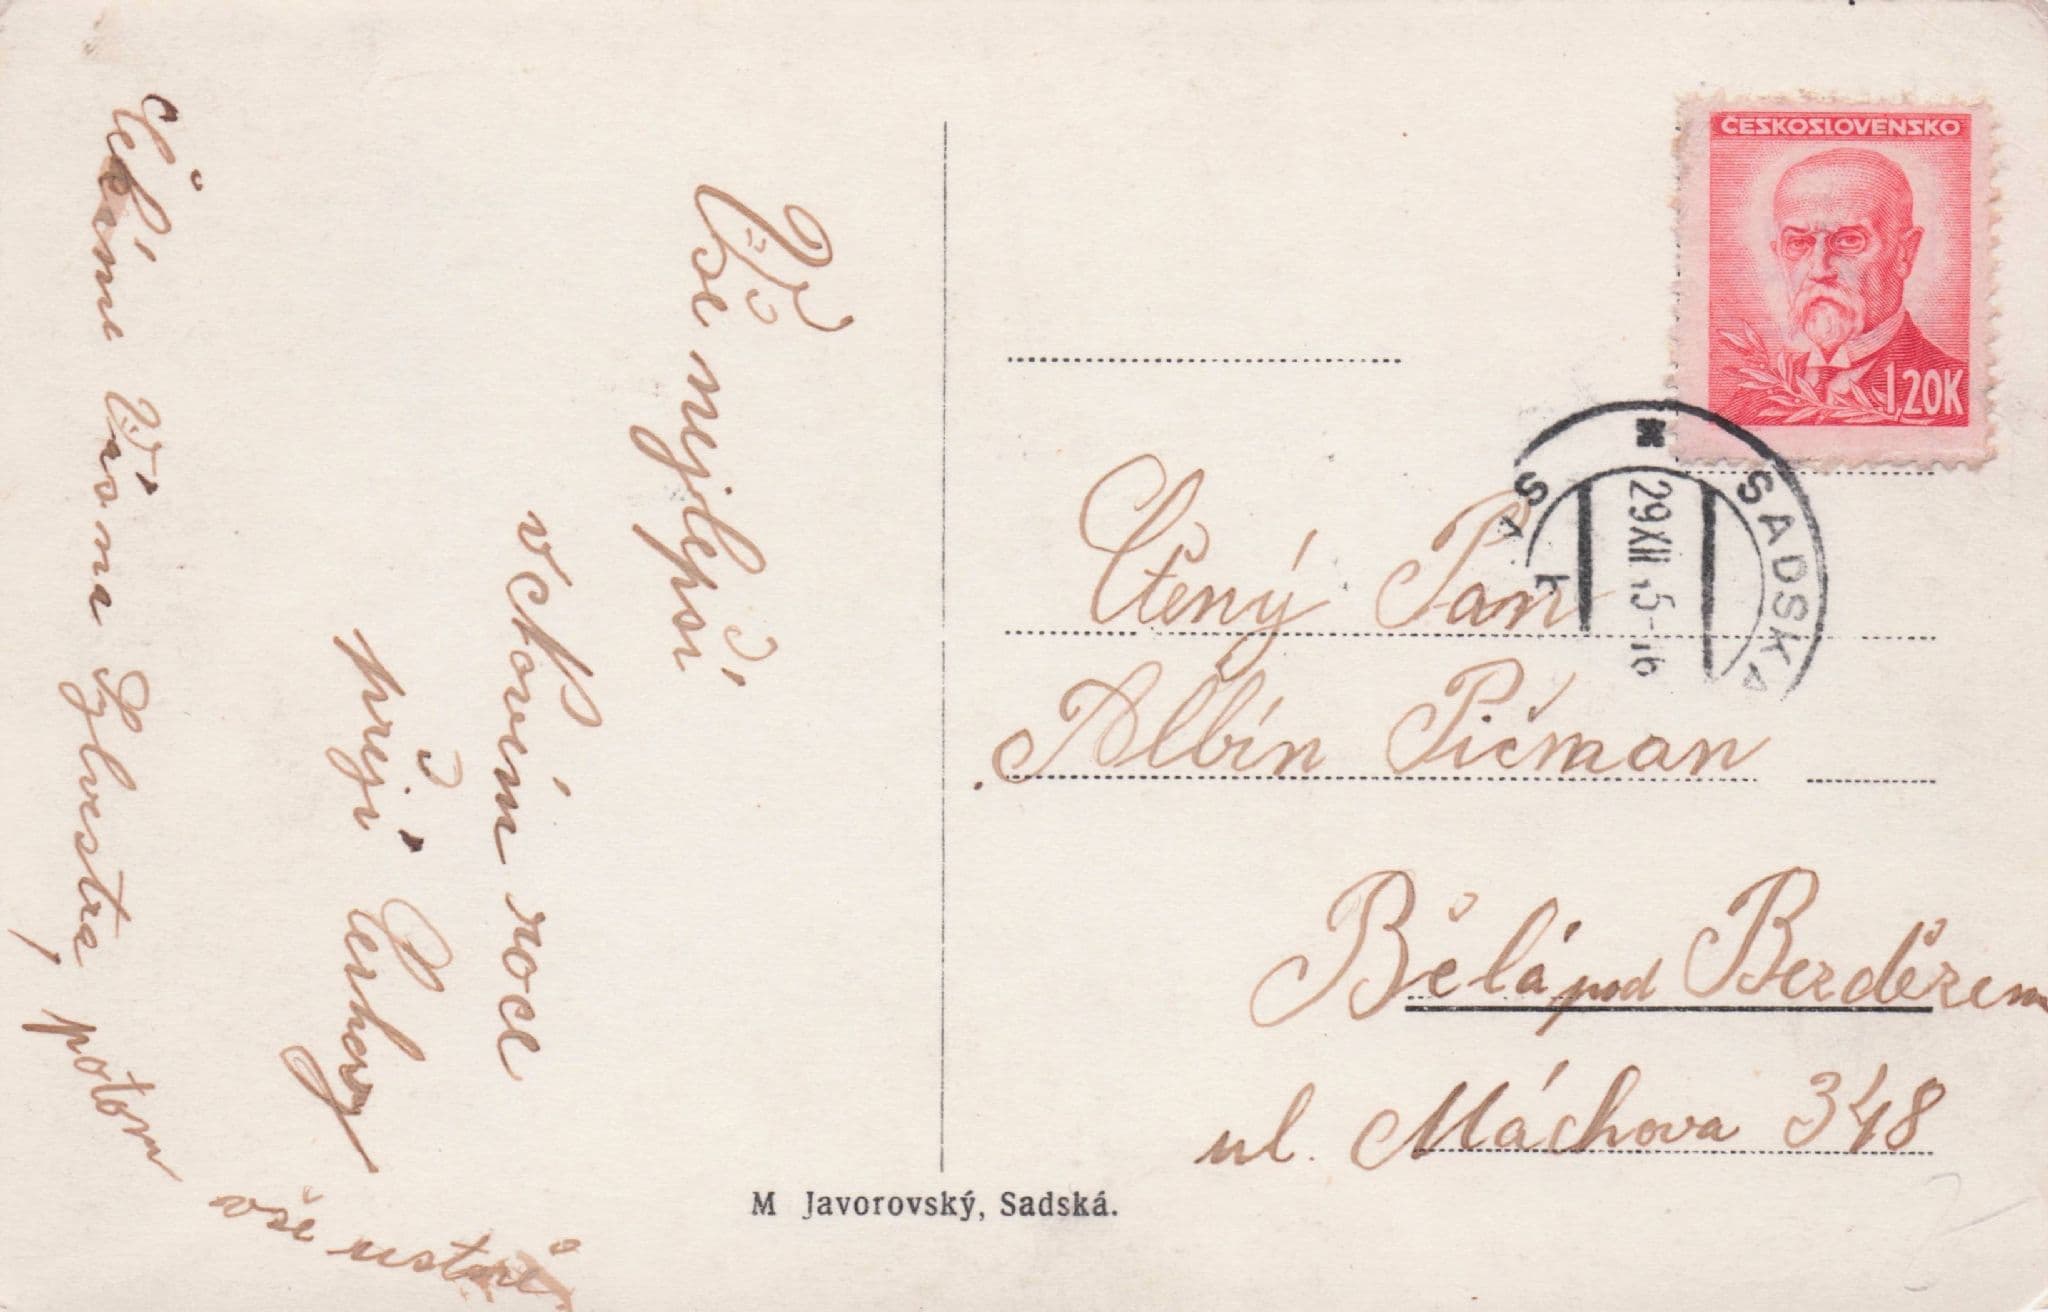 Vše nejlepší
v Novém roce
přejí Čerhovy
Čekáme Vás na Sylvestra, potom
vše ustně
ČESKOSLOVENSKO
1,20K
SADSKÁ
29 XII 45-16
Ctěný Pan
Albín Pičman
Bělá pod Berděžem
ul. Máchova 348
M Javorovský, Sadská.